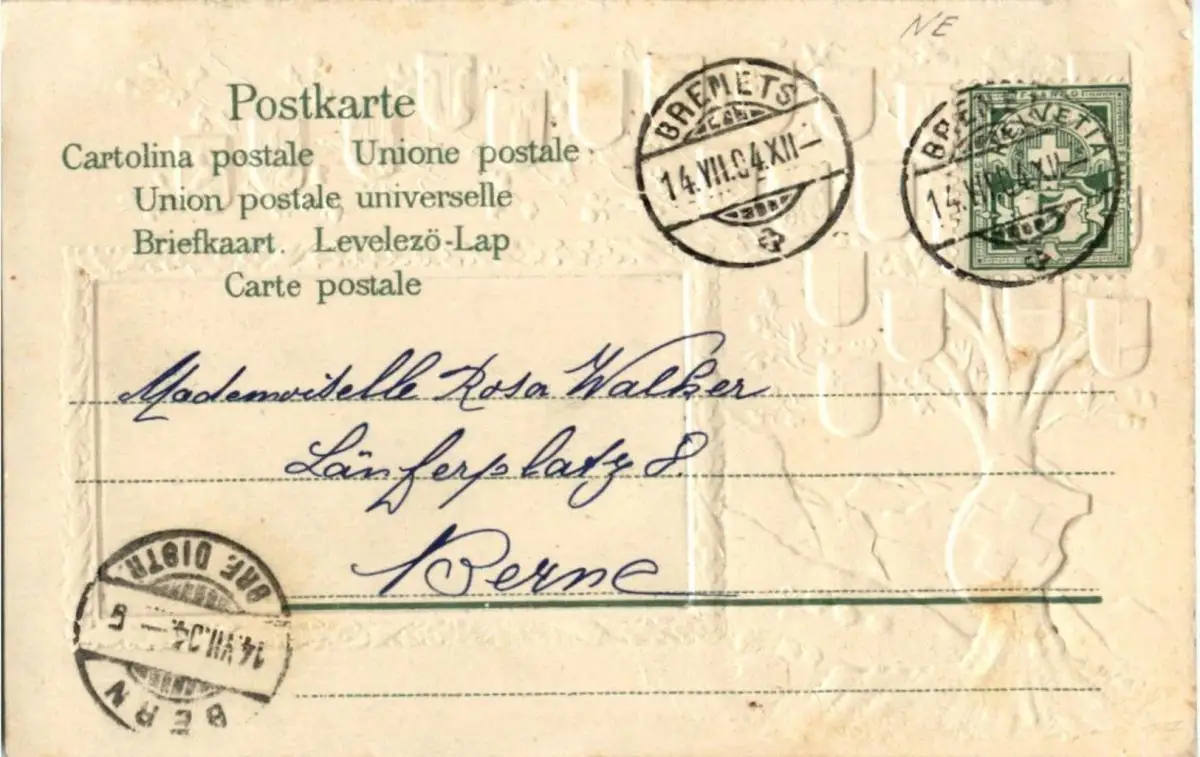 NE
Postkarte
Cartolina postale Unione postale
Union postale universelle
Briefkaart. Levelező-Lap
Carte postale
BRENETS
14.VII.04.XII—
HELVETIA
5
14.VII.04.XII—
Mademoiselle Rosa Walker
Länferplatz 8.
Berne
BERN
14.VII.04.—5
BRF. DISTR.